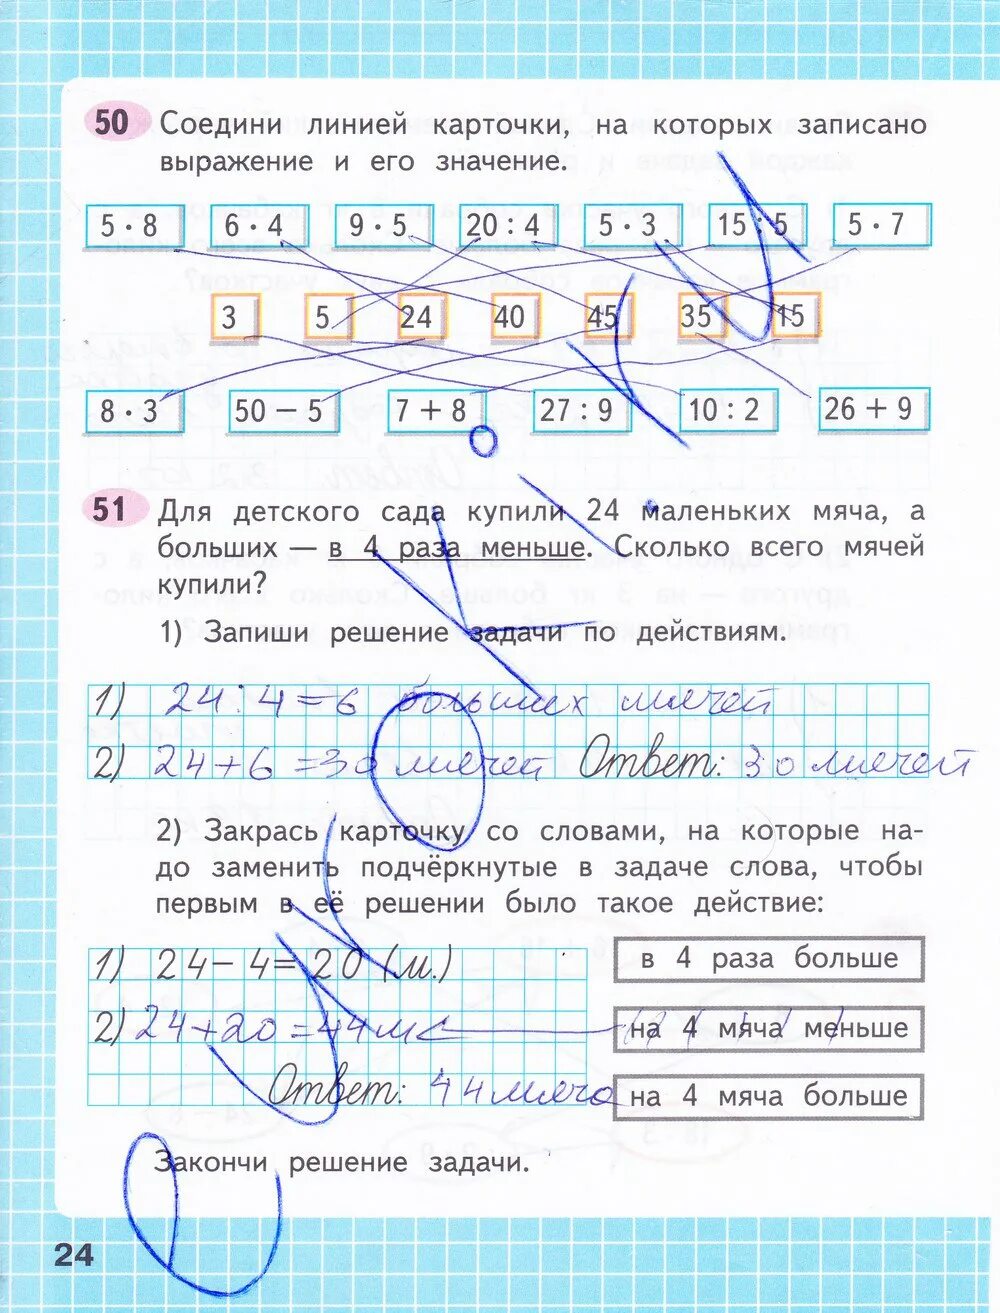 50 Соедини линией карточки, на которых записано
выражение и его значение.
5 · 8 6 · 4 9 · 5 20 : 4 5 · 3 15 : 5 5 · 7
3 5 24 40 45 35 15
8 · 3 50 − 5 7 + 8 27 : 9 10 : 2 26 + 9
51 Для детского сада купили 24 маленьких мяча, а
больших — в 4 раза меньше. Сколько всего мячей
купили?
1) Запиши решение задачи по действиям.
1) 24 : 4 = 6 больших мячей
2) 24 + 6 = 30 мячей Ответ: 30 мячей
2) Закрась карточку со словами, на которые на-
до заменить подчёркнутые в задаче слова, чтобы
первым в её решении было такое действие:
1) 24 − 4 = 20 (м.)
в 4 раза больше
2) 24 + 20 = 44 м
на 4 мяча меньше
Ответ: 44 мяча
на 4 мяча больше
Закончи решение задачи.
24